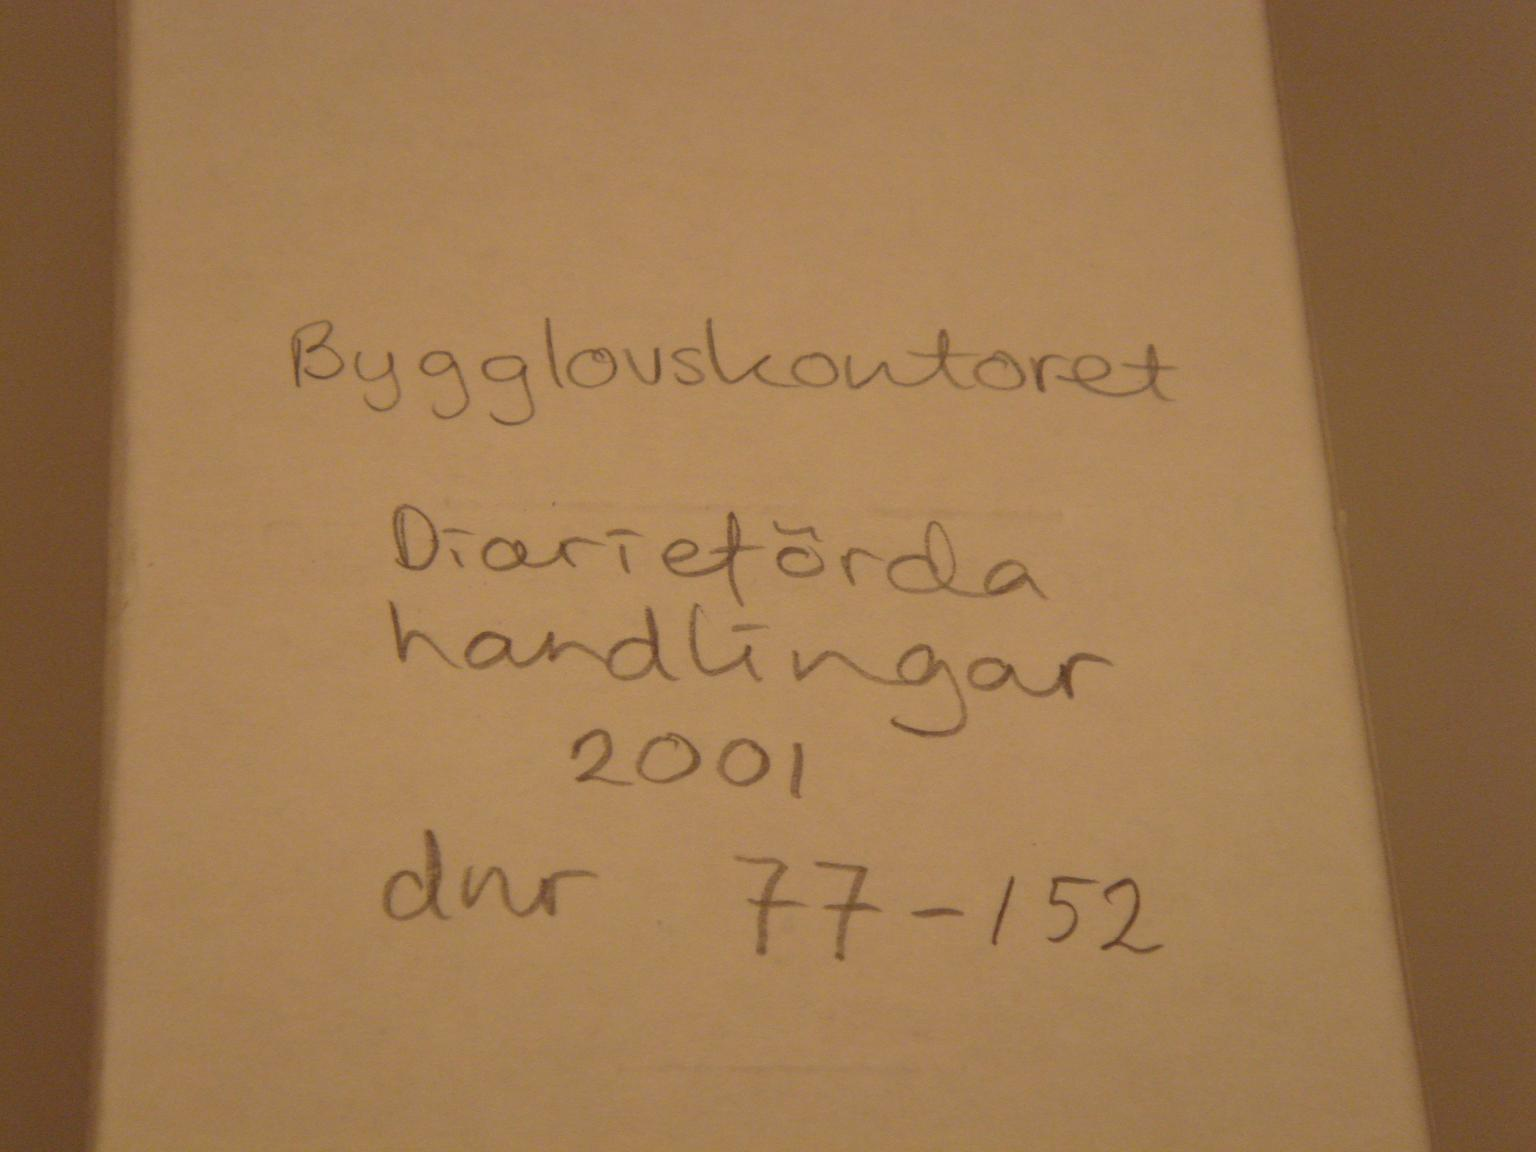 Bygglovskontoret
Diarieförda
handlingar
2001
dnr 77-152